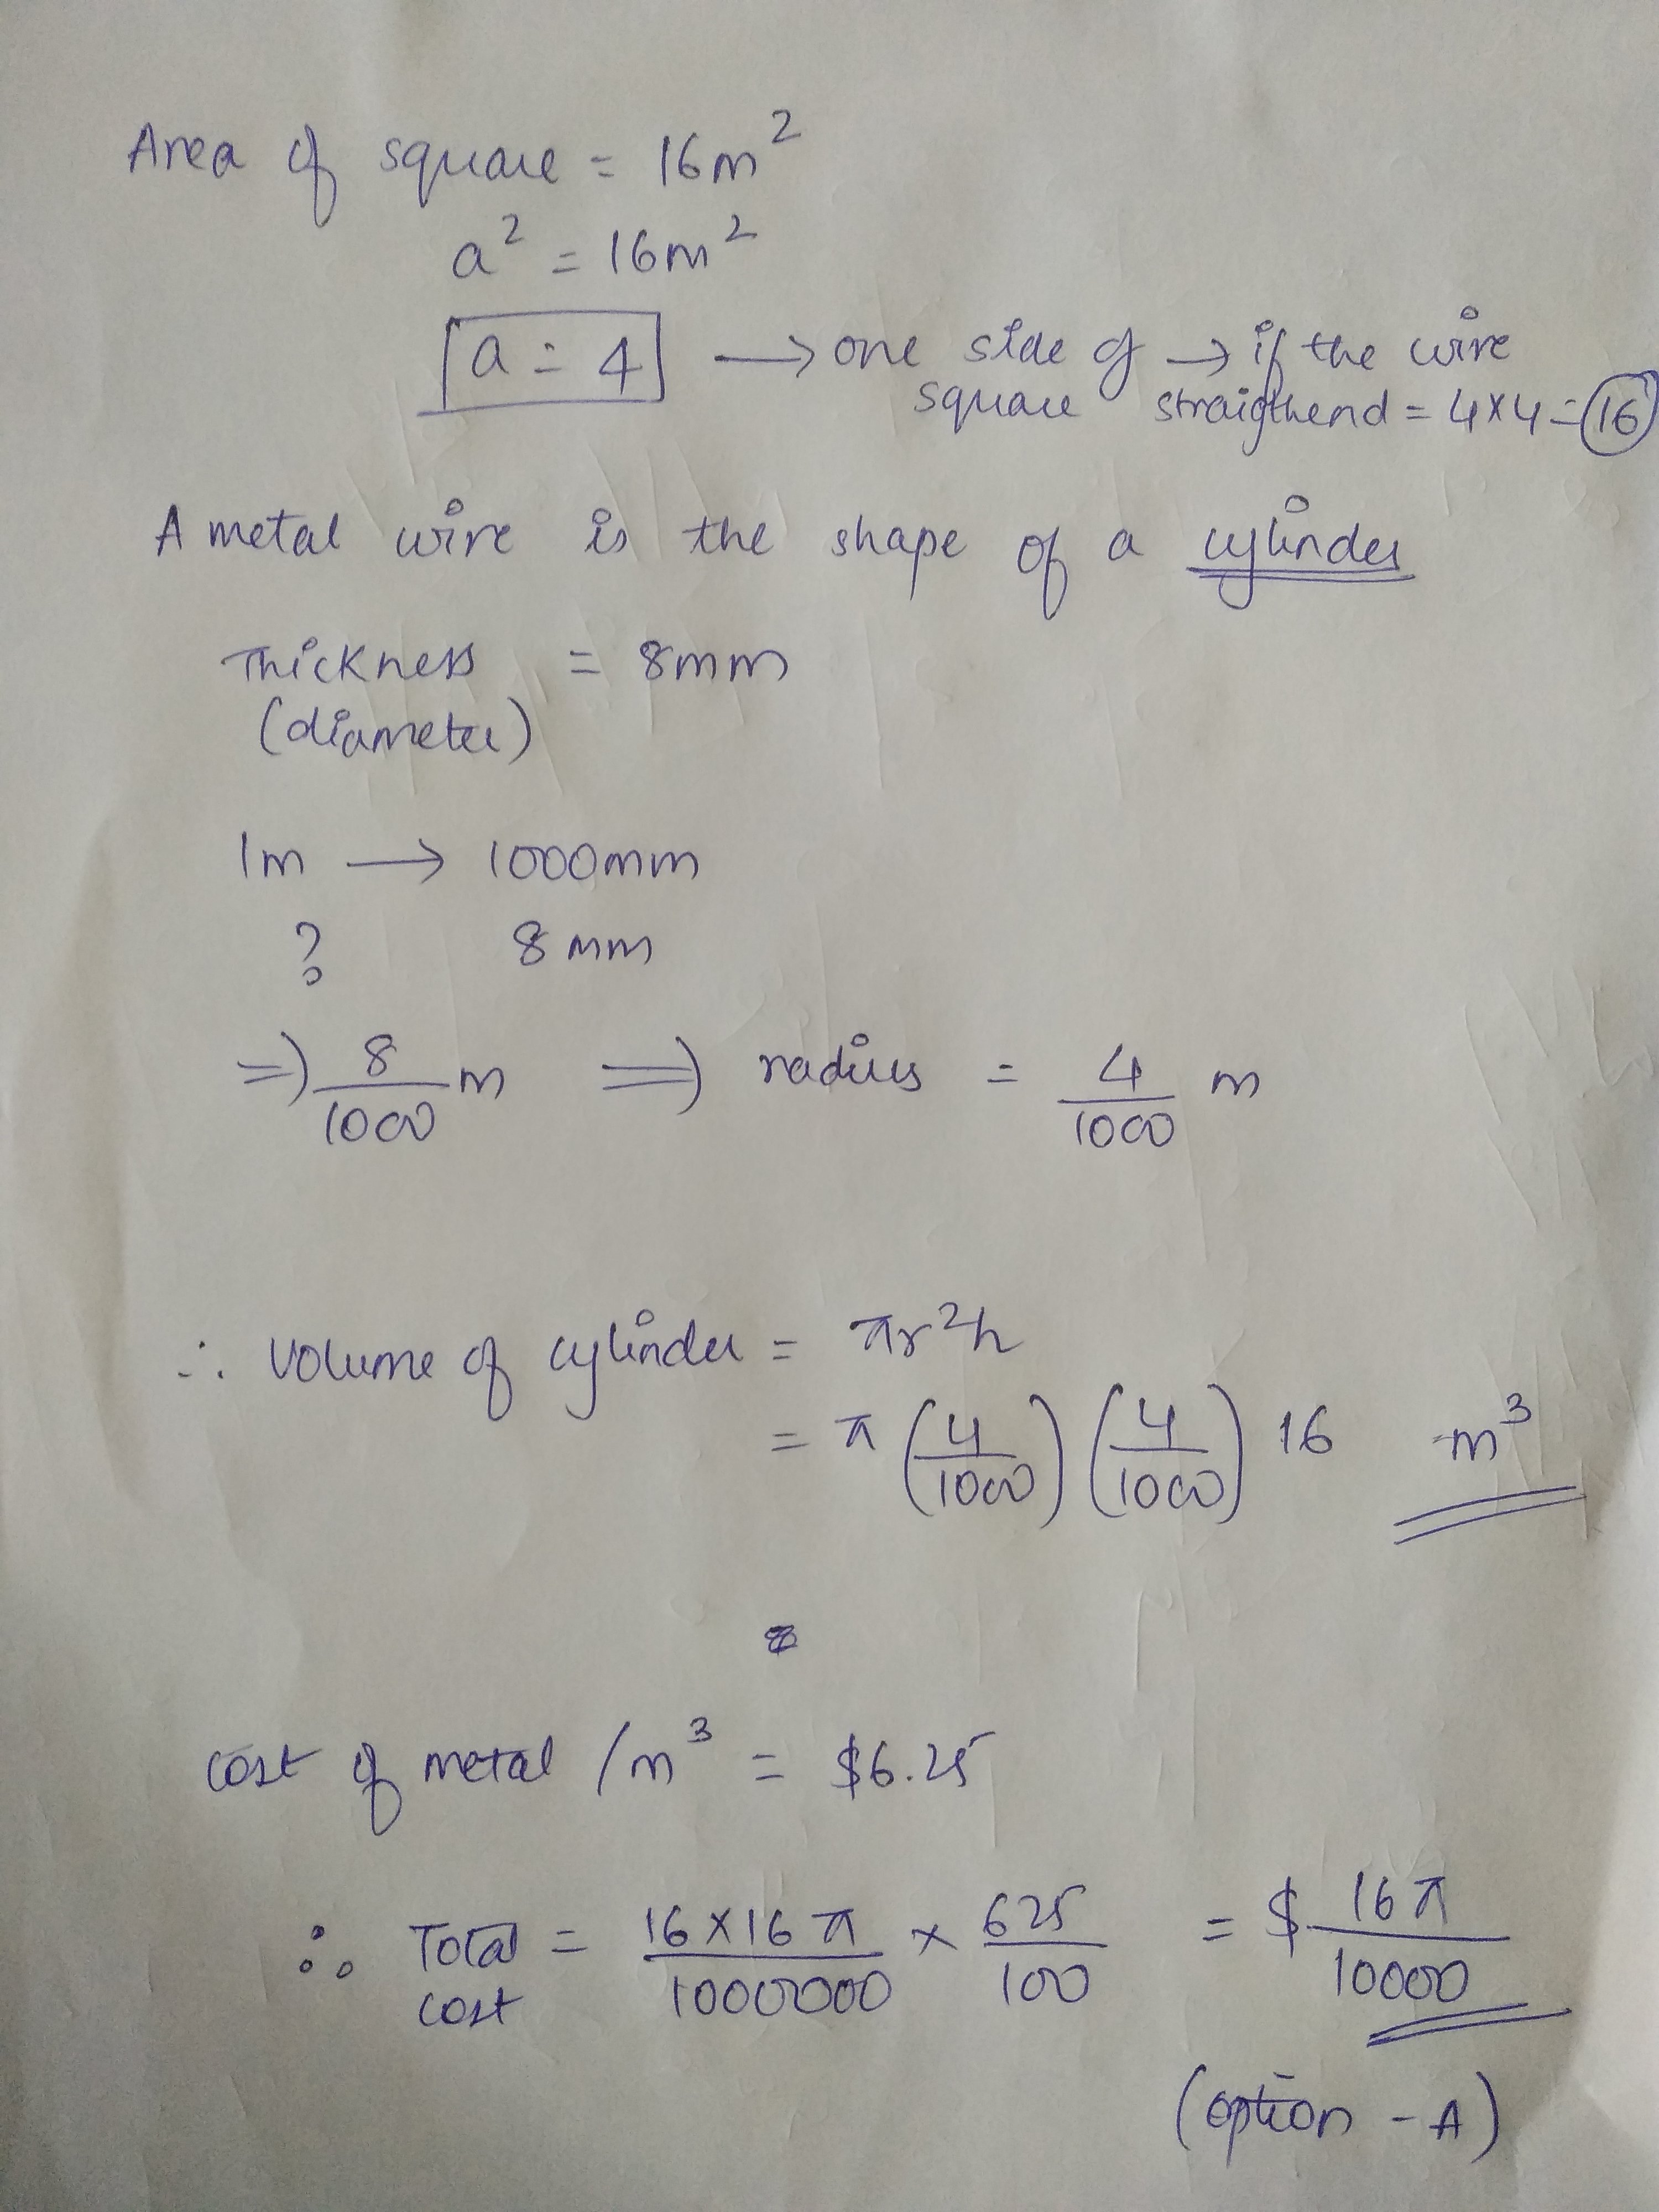 Area of square = 16m²
a² = 16m²
a = 4 → one side of → if the wire
square straigthend = 4×4 = 16
A metal wire is the shape of a cylinder
Thickness = 8mm
(diameter)
1m → 1000mm
? 8mm
⇒ 8/1000 m ⇒ radius = 4/1000 m
∴ volume of cylinder = πr²h
= π (4/1000) (4/1000) 16 m³
cost of metal /m³ = $6.25
∴ Total cost = 16×16π/1000000 × 625/100 = $ 16π/10000
(option - A)